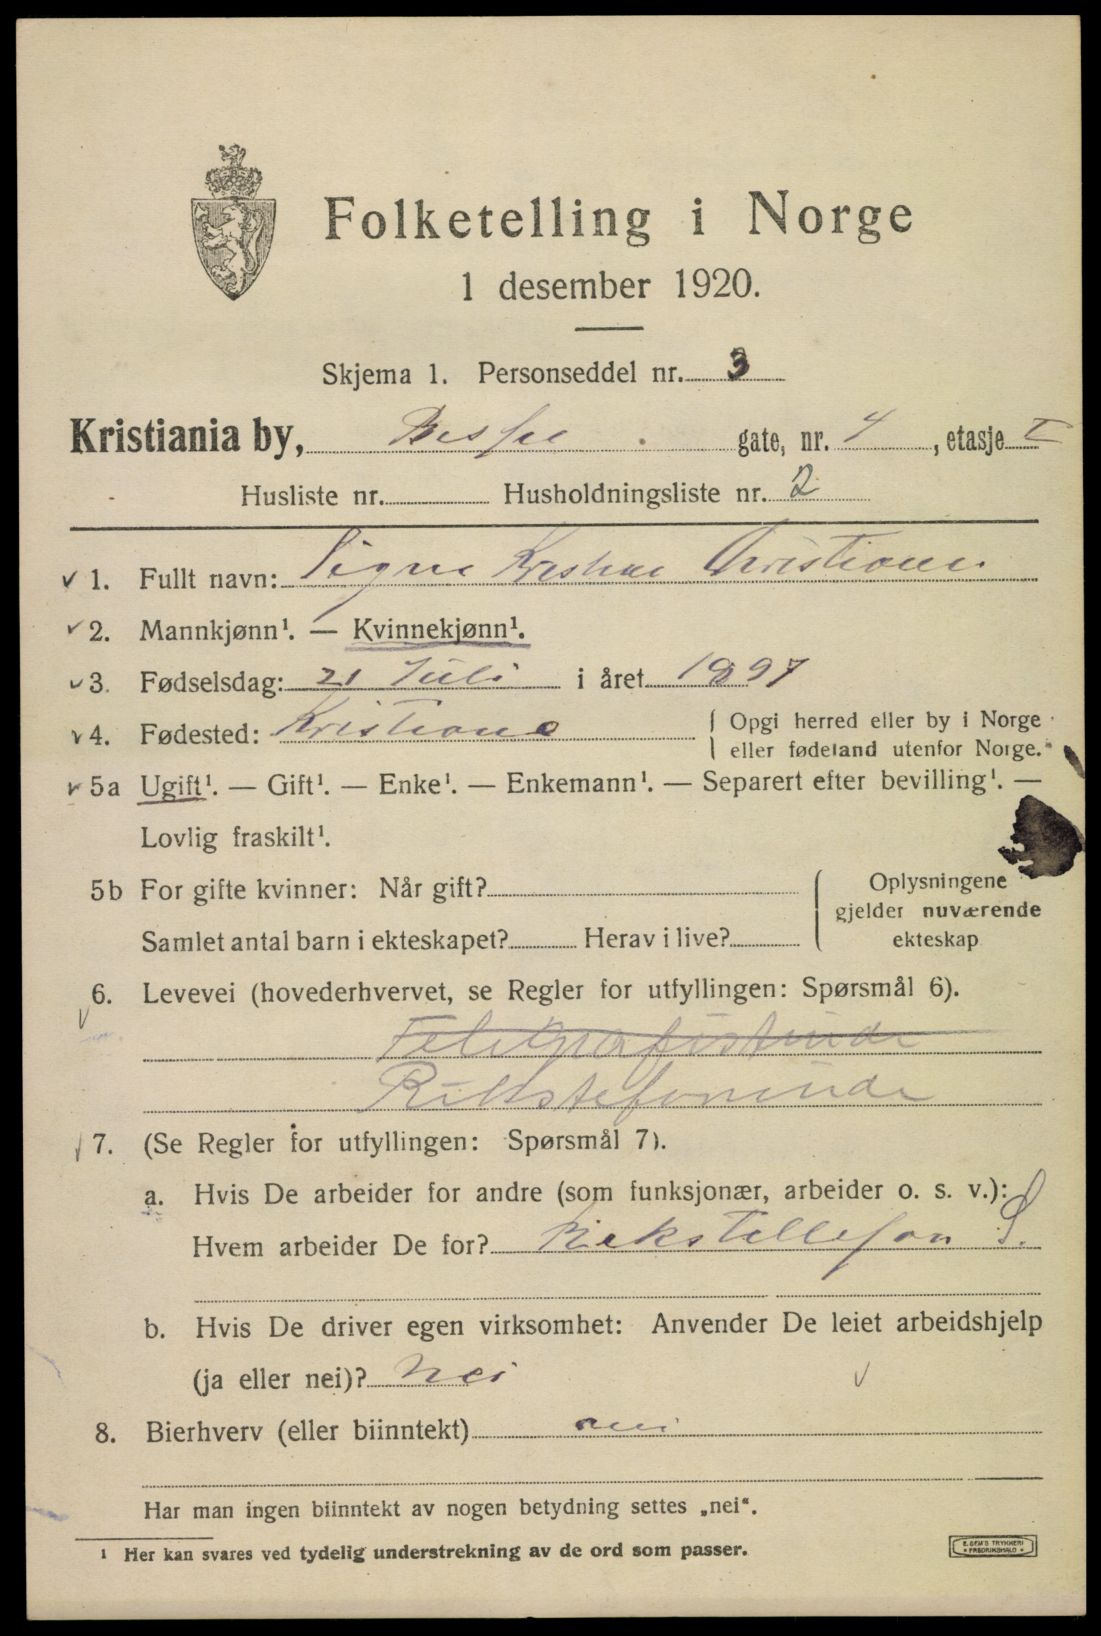 Folketelling i Norge
1 desember 1920.
Skjema 1. Personseddel nr. 3
Kristiania by, gate, nr. 4, etasje I
Husliste nr. Husholdningsliste nr. 2
1. Fullt navn: Signe
2. Mannkjønn¹. — Kvinnekjønn¹.
3. Fødselsdag: 21 Juli i året 1897
4. Fødested: Kristiana { Opgi herred eller by i Norge
eller fødeland utenfor Norge.
5a Ugift¹. — Gift¹. — Enke¹. — Enkemann¹. — Separert efter bevilling¹. —
Lovlig fraskilt¹.
5b For gifte kvinner: Når gift? { Oplysningene
gjelder nuværende
Samlet antal barn i ekteskapet? Herav i live? ekteskap
6. Levevei (hovederhvervet, se Regler for utfyllingen: Spørsmål 6).
7. (Se Regler for utfyllingen: Spørsmål 7).
a. Hvis De arbeider for andre (som funksjonær, arbeider o. s. v.):
Hvem arbeider De for? Rikstellefon S.
b. Hvis De driver egen virksomhet: Anvender De leiet arbeidshjelp
(ja eller nei)? Nei
8. Bierhverv (eller biinntekt) nei
Har man ingen biinntekt av nogen betydning settes „nei“.
¹ Her kan svares ved tydelig understrekning av de ord som passer.
E. SEM'S TRYKKERI
FREDRIKSHALD